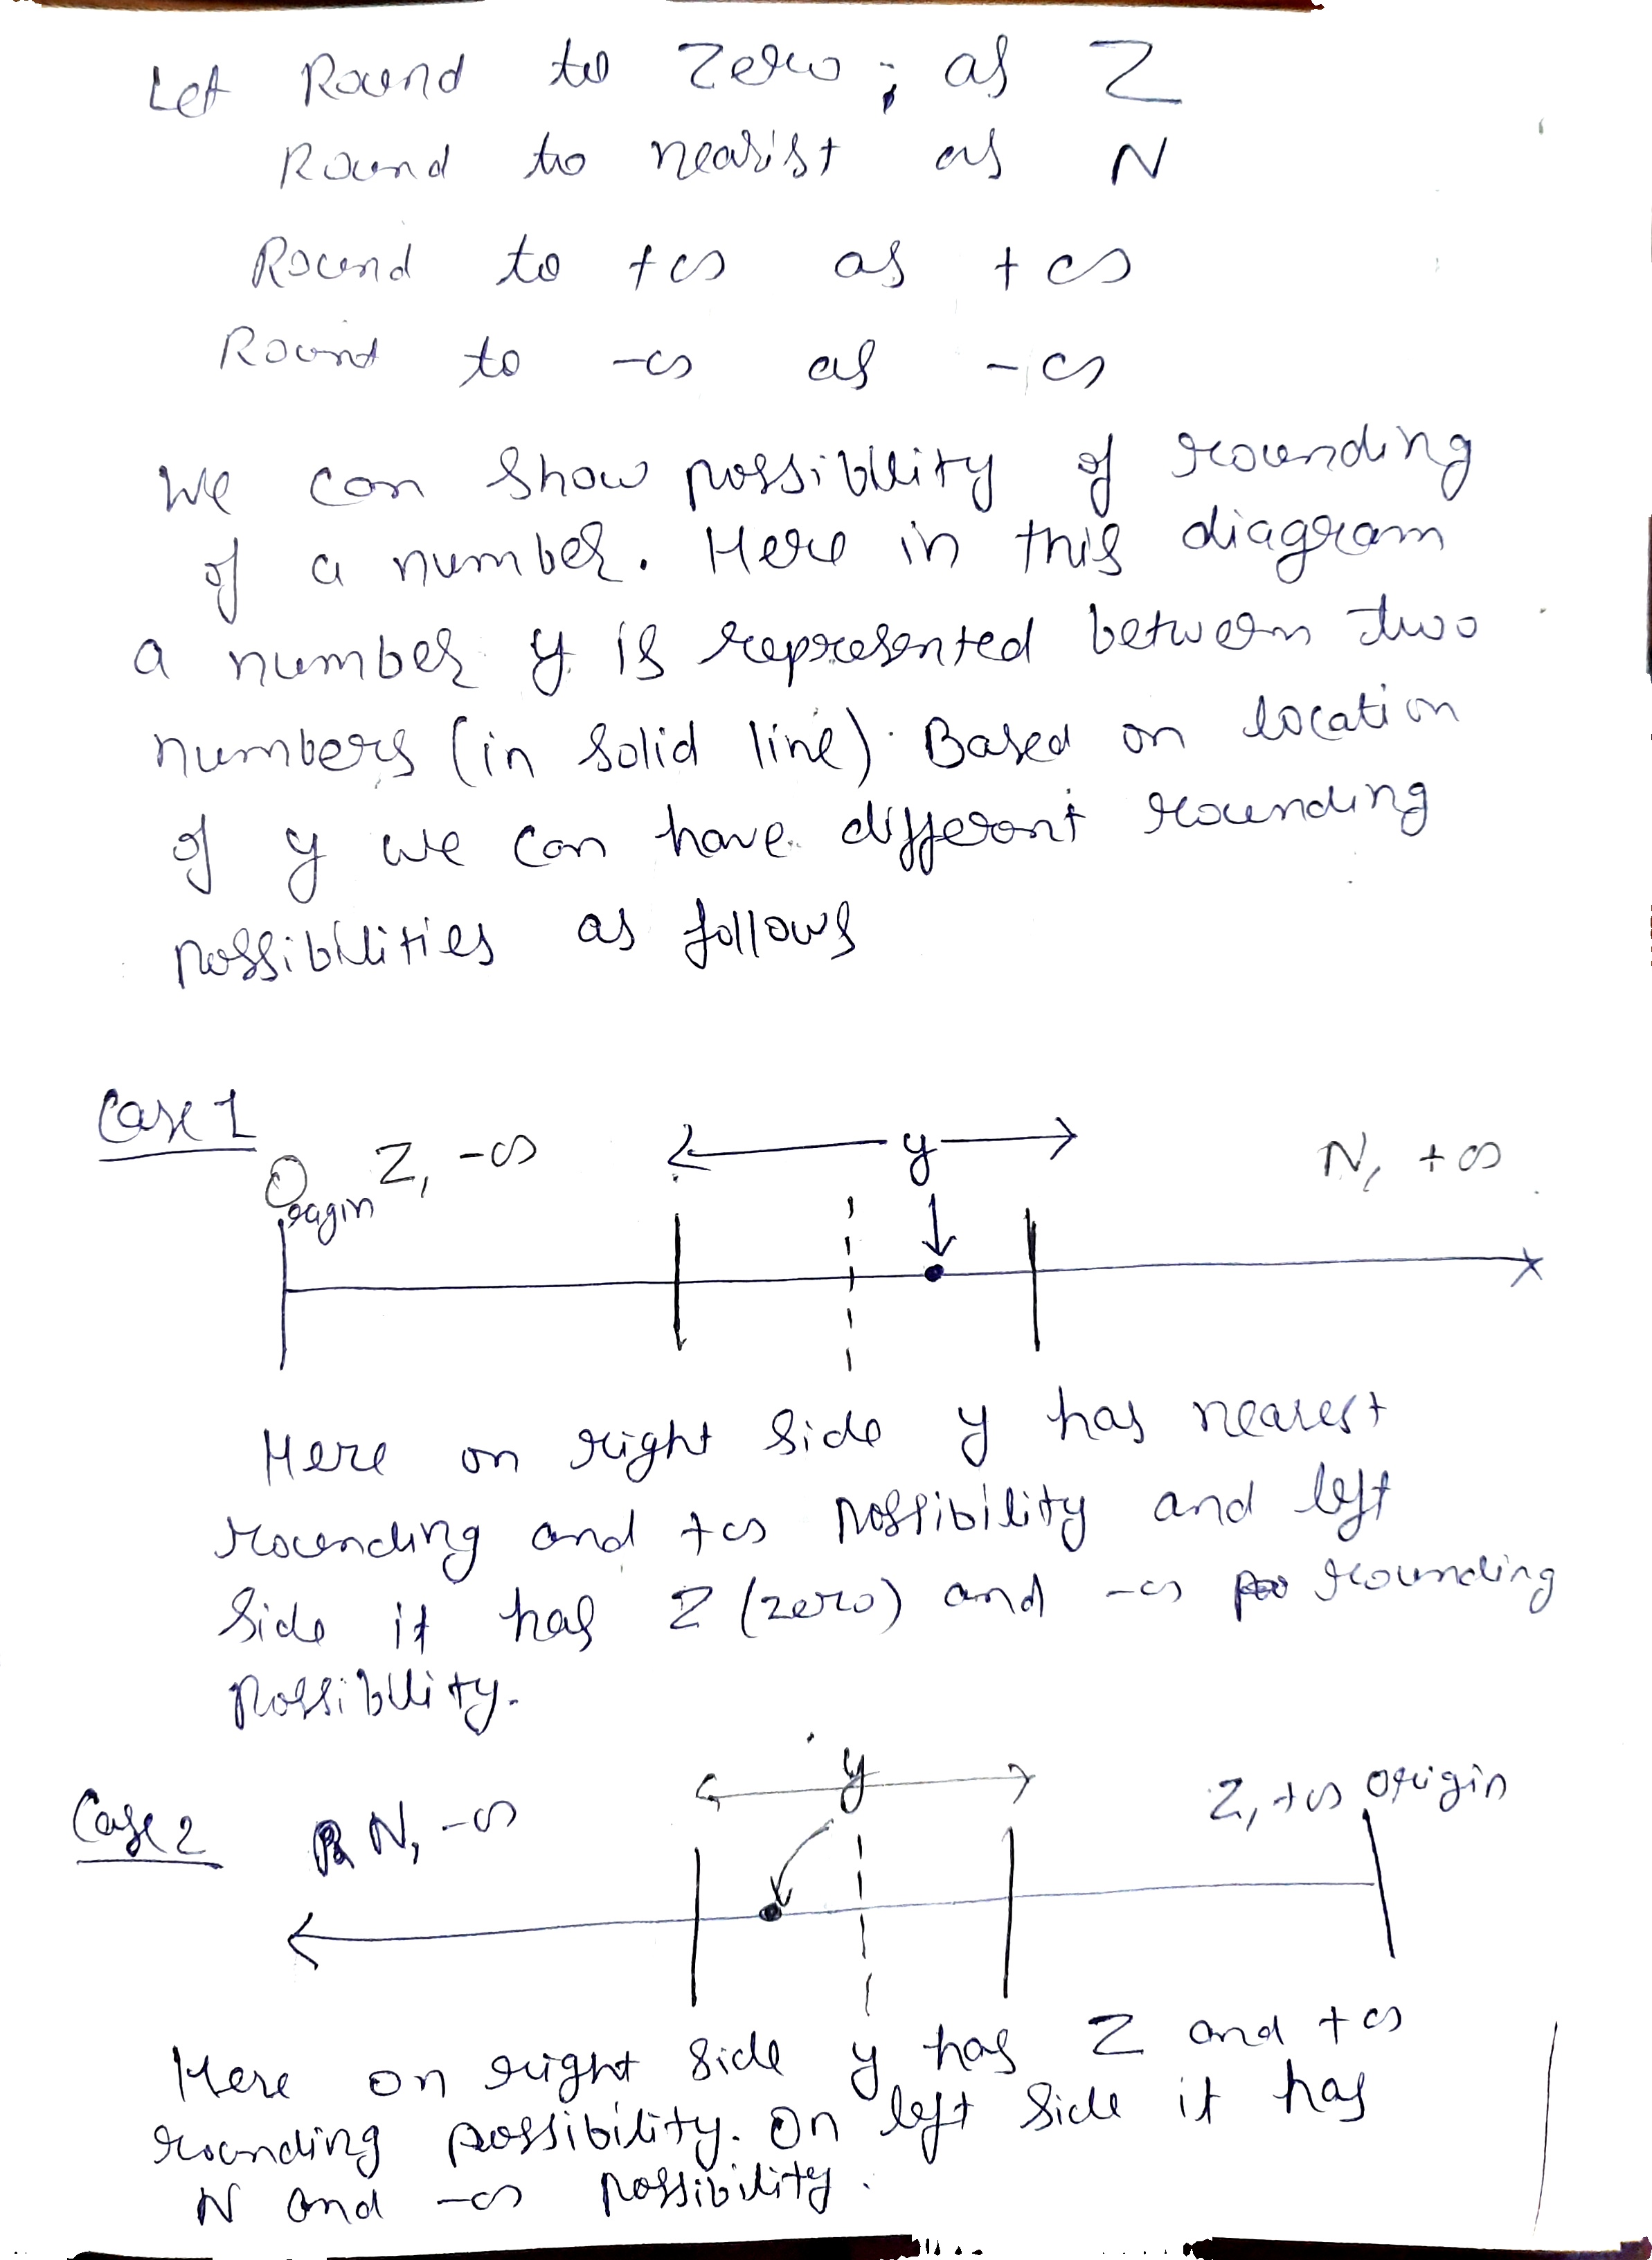 Let Round to Zero; as Z
Round to nearist as N
Round to +∞ as +∞
Round to -∞ as -∞
We can show possibility of rounding
of a number. Here in this diagram
a number y is represented between two
numbers (in solid line). Based on location
of y we can have different rounding
possibilities as follows
Case 1
Origin Z, -∞ y N, +∞
Here on right side y has nearest
rounding and +∞ possibility and left
side it has Z (zero) and -∞ rounding
possibility.
Case 2 N, -∞ y Z, +∞ origin
Here on right side y has Z and +∞
rounding possibility. On left side it has
N and -∞ possibility.